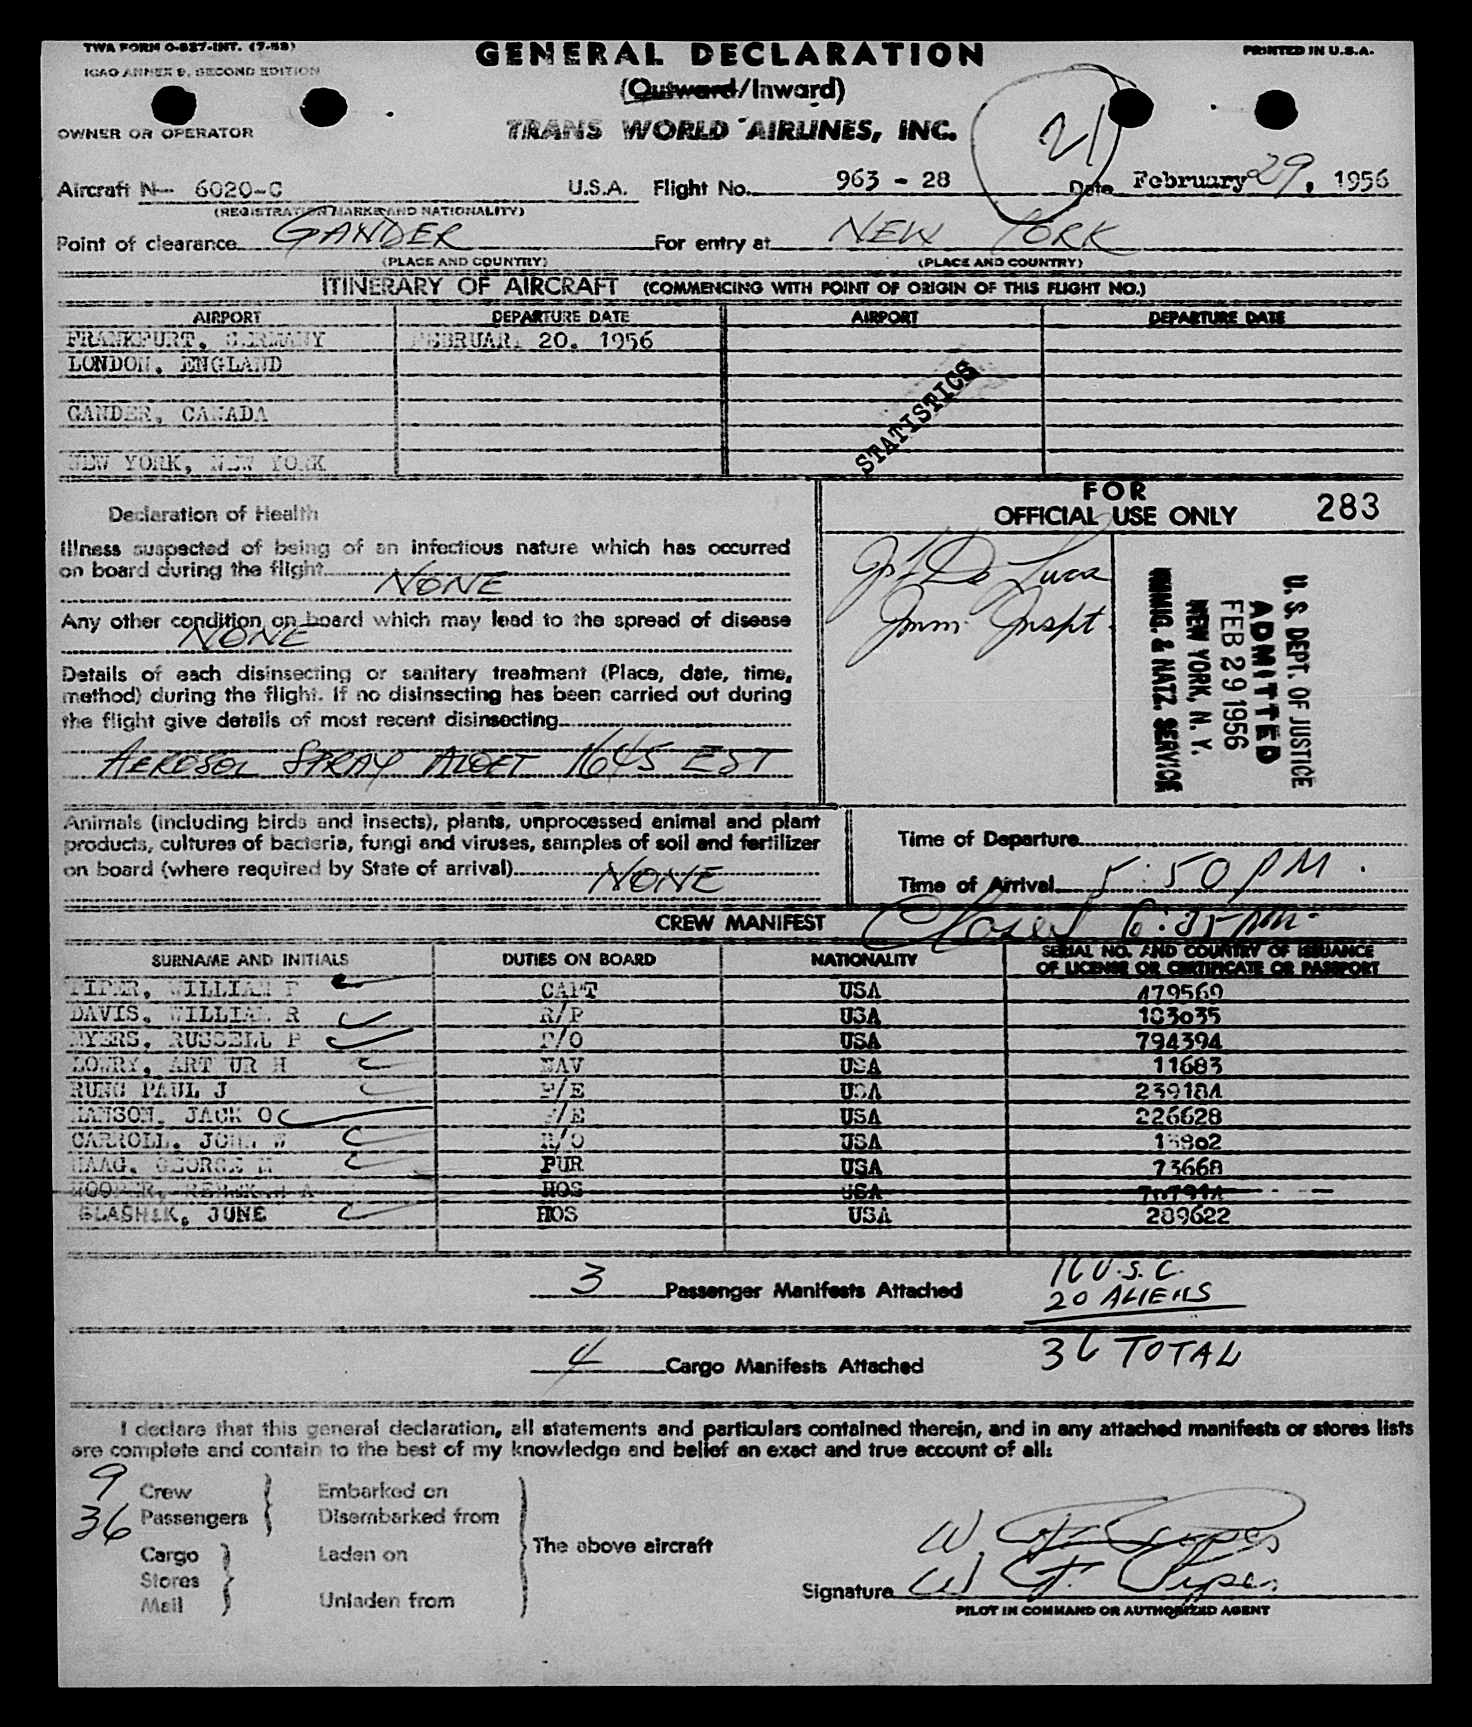 TWA FORM O-837-INT. (7-53)
ICAO ANNEX 9, SECOND EDITION
GENERAL DECLARATION
PRINTED IN U.S.A.
(Outward/Inward)
OWNER OR OPERATOR
TRANS WORLD AIRLINES, INC.
21
Aircraft N-- 6020-C U.S.A. Flight No. 963 - 28 Date February 29, 1956
(REGISTRATION MARKS AND NATIONALITY)
Point of clearance GANDER For entry at NEW YORK
(PLACE AND COUNTRY) (PLACE AND COUNTRY)
ITINERARY OF AIRCRAFT (COMMENCING WITH POINT OF ORIGIN OF THIS FLIGHT NO.)
AIRPORT DEPARTURE DATE AIRPORT DEPARTURE DATE
FRANKFURT, GERMANY FEBRUARY 20, 1956
LONDON, ENGLAND
GANDER, CANADA
NEW YORK, NEW YORK
STATISTICS
FOR
OFFICIAL USE ONLY 283
Declaration of Health
Illness suspected of being of an infectious nature which has occurred
on board during the flight NONE
Any other condition on board which may lead to the spread of disease
NONE
Details of each disinsecting or sanitary treatment (Place, date, time,
method) during the flight. If no disinsecting has been carried out during
the flight give details of most recent disinsecting
AEROSOL SPRAY 1645 EST
De Luca
Imm. Inspt.
U. S. DEPT. OF JUSTICE
ADMITTED
FEB 29 1956
NEW YORK, N. Y.
IMMIG. & NATZ. SERVICE
Animals (including birds and insects), plants, unprocessed animal and plant
products, cultures of bacteria, fungi and viruses, samples of soil and fertilizer
on board (where required by State of arrival) NONE
Time of Departure
Time of Arrival 5:50 PM.
Closed 6:25 PM.
CREW MANIFEST
SURNAME AND INITIALS DUTIES ON BOARD NATIONALITY SERIAL NO. AND COUNTRY OF ISSUANCE
OF LICENSE OR CERTIFICATE OR PASSPORT
PIPER, WILLIAM F CAPT USA 479569
DAVIS, WILLIAM R R/P USA 103035
MYERS, RUSSELL P F/O USA 794394
LOWRY, ARTHUR H NAV USA 11683
RUNG PAUL J F/E USA 239184
HANSON, JACK O F/E USA 226628
CARROLL, JOHN W R/O USA
HAAG, GEORGE PUR USA 73668
HOS USA
JUNE HOS USA 289622
3 Passenger Manifests Attached
16 U.S.C.
20 ALIENS
36 TOTAL
4 Cargo Manifests Attached
I declare that this general declaration, all statements and particulars contained therein, and in any attached manifests or stores lists
are complete and contain to the best of my knowledge and belief an exact and true account of all:
9 Crew
36 Passengers
Cargo
Stores
Mail
Embarked on
Disembarked from
Laden on
Unladen from
The above aircraft
W. F. Piper
Signature W F. Piper
PILOT IN COMMAND OR AUTHORIZED AGENT